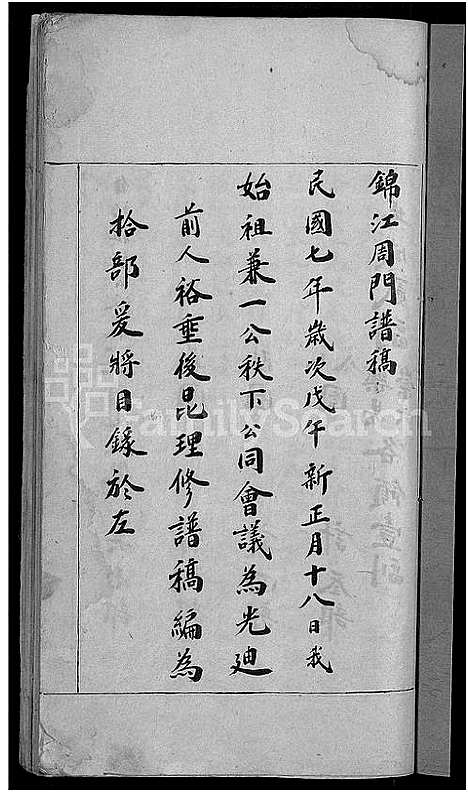 錦江周門譜稿
民國七年歲次戊午新正月十八日我
始祖兼一公秩下公同會議為光廸
前人裕垂後昆理修譜稿編為
拾部爰將目錄於左
FamilySearch